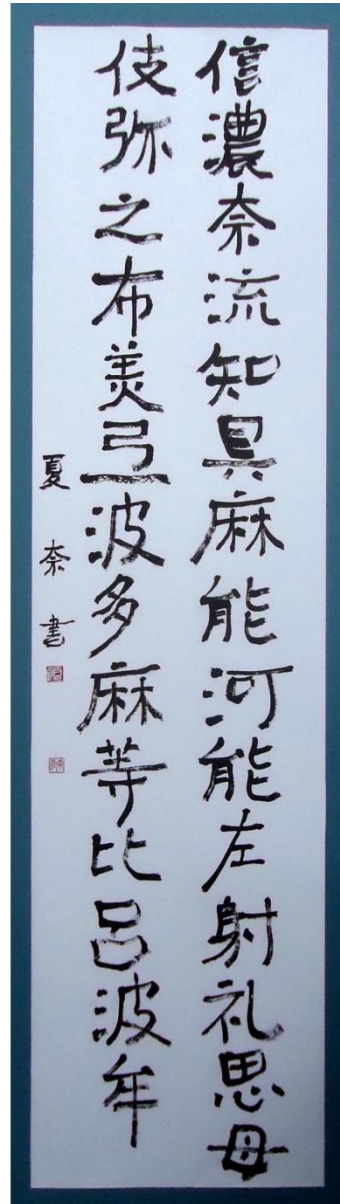 信濃奈流知具麻能河能左射礼思母
伎弥之布美弖波多麻等比呂波牟
夏奈書